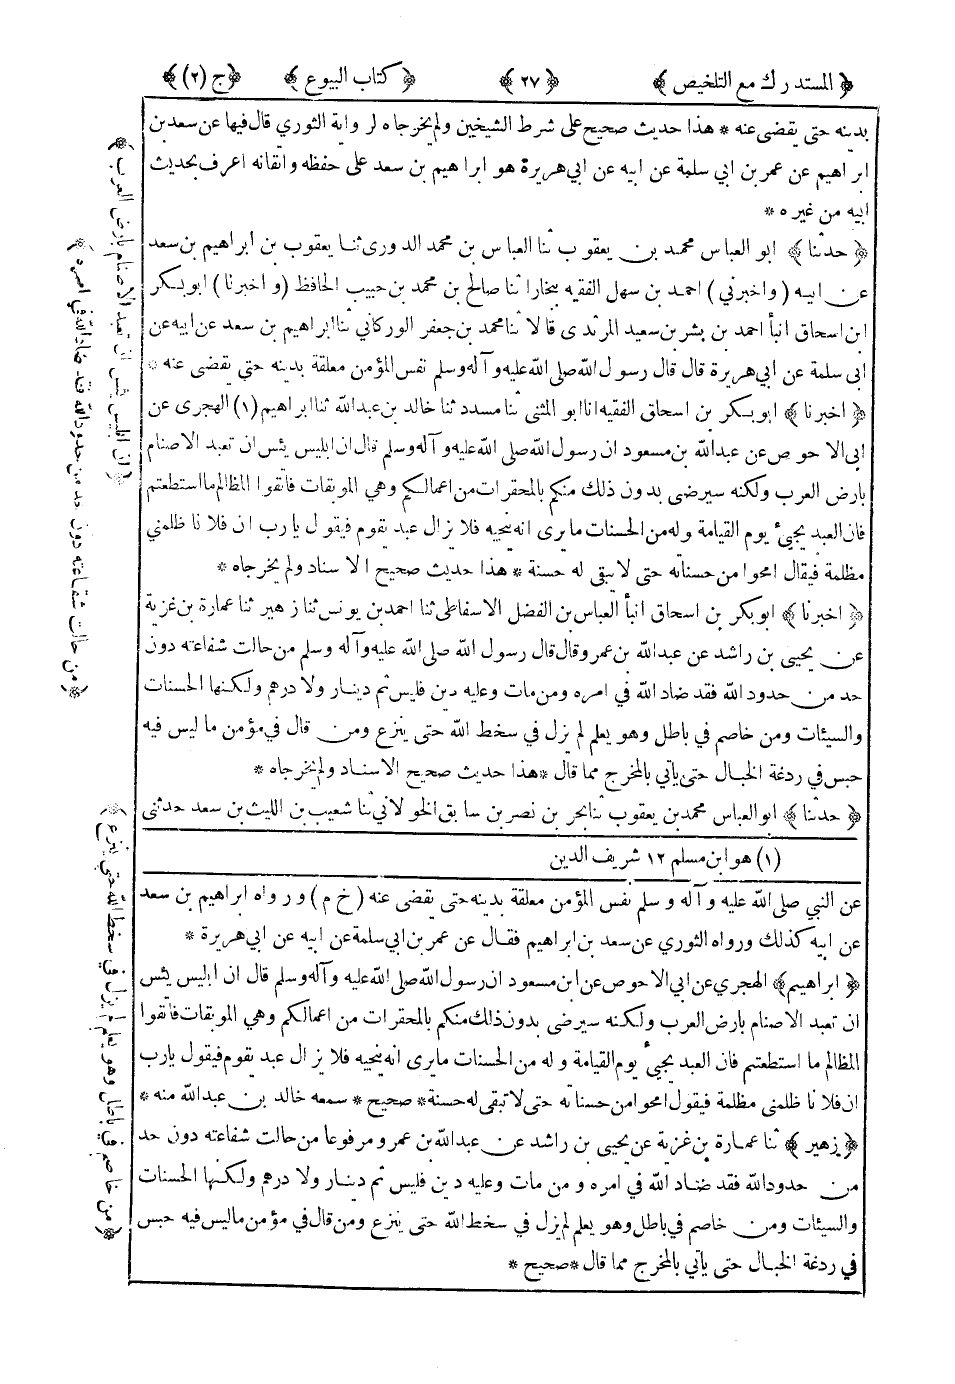 ﴿ المستدرك مع التلخيص ﴾ ﴿ ٢٧ ﴾ ﴿ كتاب البيوع ﴾ ﴿ ج (٢) ﴾
بدينه حتى يقضى عنه * هذا حديث صحيح على شرط الشيخين ولم يخرجاه لرواية الثوري قال فيها عن سعد بن
ابراهيم عن عمر بن ابي سلمة عن ابيه عن ابي هريرة هو ابراهيم بن سعد على حفظه واتقانه اعرف بحديث
ابيه من غيره *
﴿ حدثنا ﴾ ابو العباس محمد بن يعقوب ثنا العباس بن محمد الدورى ثنا يعقوب بن ابراهيم بن سعد
عن ابيه (واخبرني) احمد بن سهل الفقيه ببخارا ثنا صالح بن محمد بن حبيب الحافظ (و اخبرنا) ابو بكر
ابن اسحاق انبأ احمد بن بشر بن سعيد المرثدى قالا ثنا محمد بن جعفر الوركاني ثنا ابراهيم بن سعد عن ابيه عن
ابى سلمة عن ابي هريرة قال قال رسول الله صلى الله عليه وآله وسلم نفس المؤمن معلقة بدينه حتى يقضى عنه *
﴿ اخبرنا ﴾ ابو بكر بن اسحاق الفقيه انا ابو المثنى ثنا مسدد ثنا خالد بن عبدالله ثنا ابراهيم (١) الهجرى عن
ابى الاحوص عن عبدالله بن مسعود ان رسول الله صلى الله عليه وآله وسلم قال ان ابليس يئس ان تعبد الاصنام
بارض العرب ولكنه سيرضى بدون ذلك منكم بالمحقرات من اعمالكم وهي الموبقات فاتقوا المظالم ما استطعتم
فان العبد يجيئ يوم القيامة وله من الحسنات ما يرى انه ينجيه فلا يزال عبد يقوم فيقول يا رب ان فلانا ظلمني
مظلمة فيقال امحوا من حسناته حتى لا يبقى له حسنة * هذا حديث صحيح الاسناد ولم يخرجاه *
﴿ اخبرنا ﴾ ابو بكر بن اسحاق انبأ العباس بن الفضل الاسفاطى ثنا احمد بن يونس ثنا زهير ثنا عمارة بن غزية
عن يحيى بن راشد عن عبدالله بن عمرو قال قال رسول الله صلى الله عليه وآله وسلم من حالت شفاعته دون
حد من حدود الله فقد ضاد الله في امره ومن مات وعليه دين فليس ثم دينار ولا درهم ولكنها الحسنات
والسيئات ومن خاصم في باطل وهو يعلم لم يزل في سخط الله حتى ينزع ومن قال في مؤمن ما ليس فيه
حبس في ردغة الخبال حتى يأتي بالمخرج مما قال * هذا حديث صحيح الاسناد ولم يخرجاه *
﴿ حدثنا ﴾ ابو العباس محمد بن يعقوب ثنا بحر بن نصر بن سابق الخولاني ثنا شعيب بن الليث بن سعد حدثنى
(١) هو ابن مسلم ١٢ شريف الدين
عن النبي صلى الله عليه وآله وسلم نفس المؤمن معلقة بدينه حتى يقضى عنه (خ م) ورواه ابراهيم بن سعد
عن ابيه كذلك ورواه الثوري عن سعد بن ابراهيم فقال عن عمر بن ابي سلمة عن ابيه عن ابي هريرة *
﴿ ابراهيم ﴾ الهجري عن ابي الاحوص عن ابن مسعود ان رسول الله صلى الله عليه وآله وسلم قال ان ابليس يئس
ان تعبد الاصنام بارض العرب ولكنه سيرضى بدون ذلك منكم بالمحقرات من اعمالكم وهي الموبقات فاتقوا
المظالم ما استطعتم فان العبد يجيئ يوم القيامة وله من الحسنات ما يرى انه ينجيه فلا يزال عبد يقوم فيقول يارب
ان فلانا ظلمنى مظلمة فيقول امحوا من حسناته حتى لا تبقى له حسنة * صحيح * سمعه خالد بن عبدالله منه *
﴿ زهير ﴾ ثنا عمارة بن غزية عن يحيى بن راشد عن عبدالله بن عمرو مرفوعا من حالت شفاعته دون حد
من حدود الله فقد ضاد الله في امره و من مات وعليه دين فليس ثم دينار ولا درهم ولكنها الحسنات
والسيئات ومن خاصم في باطل وهو يعلم لم يزل في سخط الله حتى ينزع ومن قال في مؤمن ما ليس فيه حبس
في ردغة الخبال حتى يأتي بالمخرج مما قال * صحيح *
﴿ ان ابليس يئس ان تعبد الاصنام بارض العرب ﴾
﴿ من حالت شفاعته دون حد من حدود الله فقد ضاد الله في امره ﴾
﴿ من خاصم في باطل وهو يعلم لم يزل في سخط الله حتى ينزع ﴾